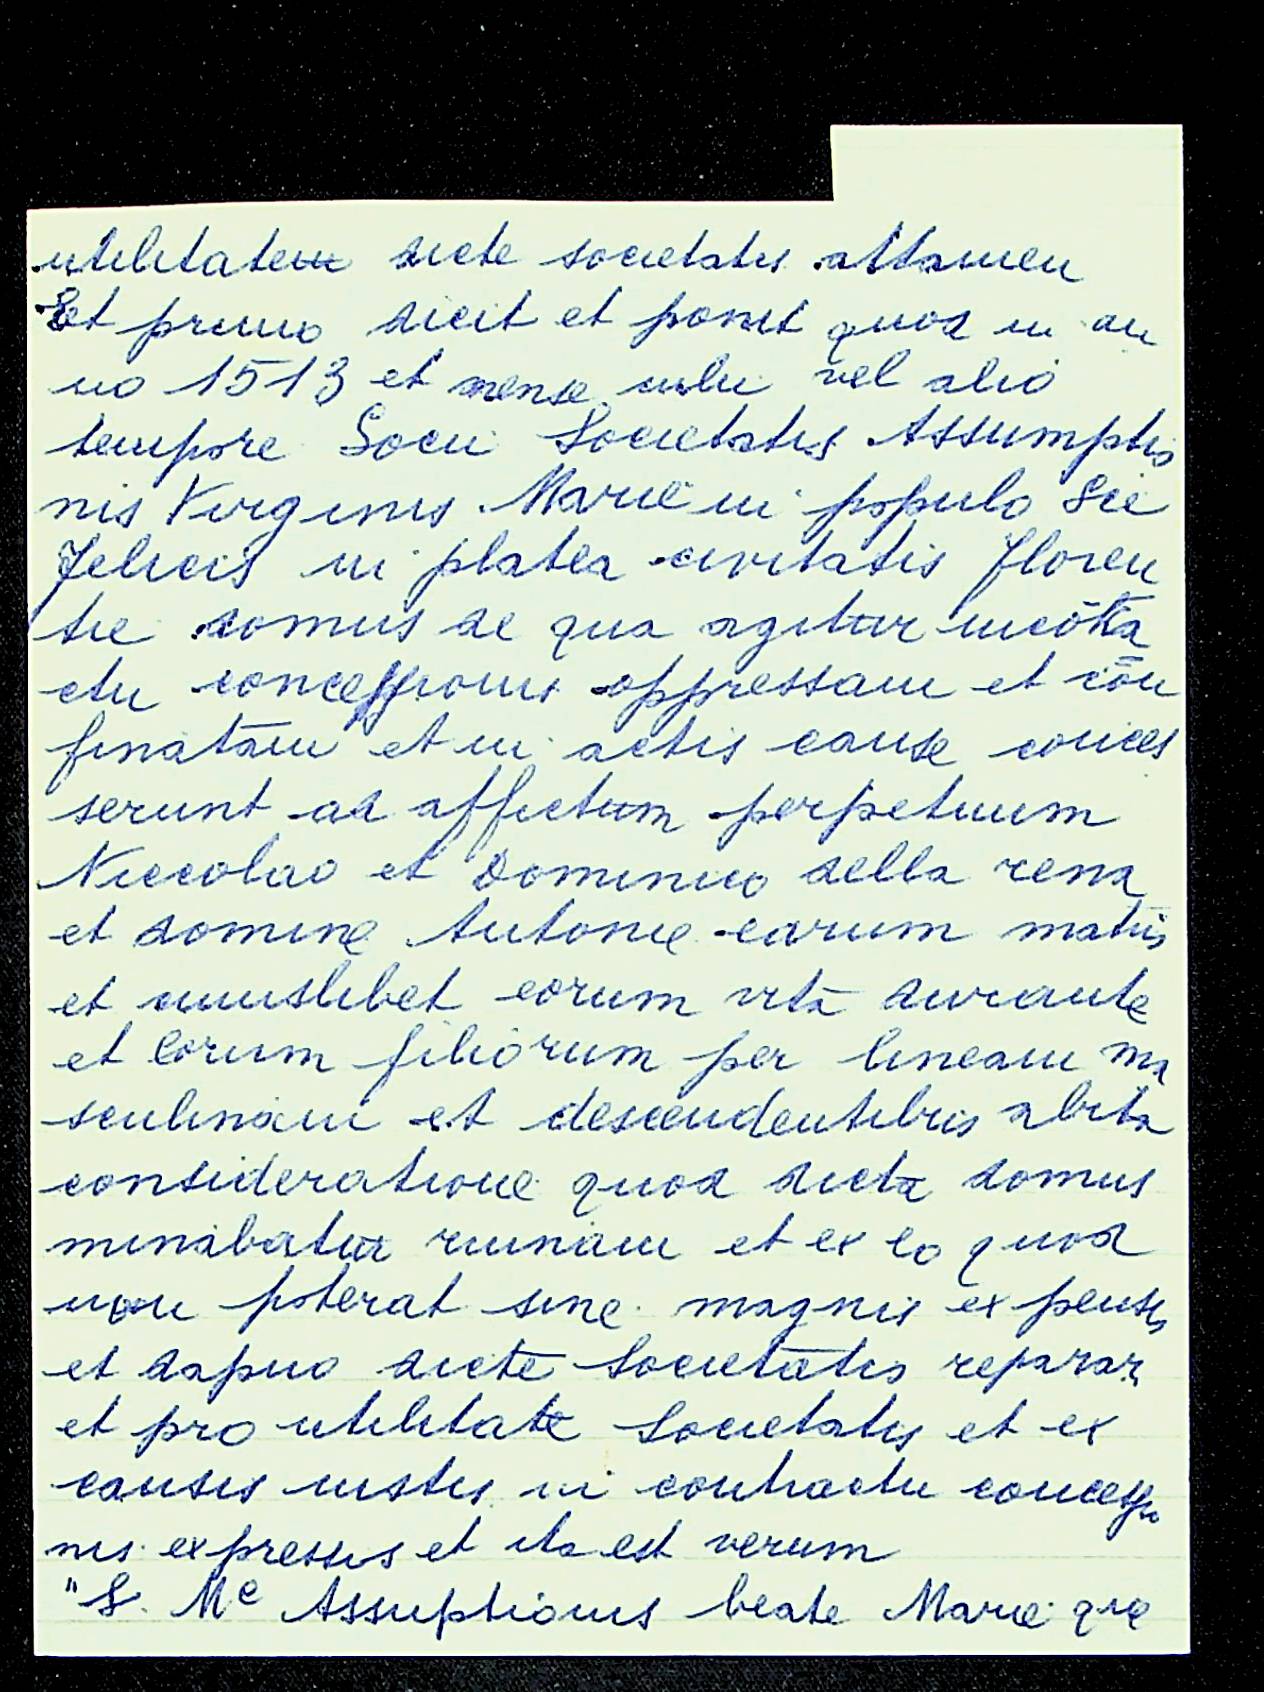 utilitatem dicte societatis attamen
Et primo dicit et ponit quod in an
no 1513 et mense iulii vel alio
tempore Socii Societatis Assumptio
nis Virginis Marie in populo Sce
Felicis in platea civitatis Floren
tie domus de qua agitur in cōtra
ctu concessionis oppressam et cōn
finatam et in actis cause conces
serunt ad affictum perpetuum
Niccolao et Dominico della rena
et domine Antonie earum matris
et uniuslibet eorum vitā durante
et eorum filiorum per lineam ma
sculinam et descendentibus abita
consideratione quod dicta domus
minabatur ruinam et ex eo quod
non poterat sine magnis expensis
et dapno dicte Societatis reparari
et pro utilitate Societatis et ex
causis iustis in contractu concessio
nis expressis et ita est verum
"S. Mᵉ Assuptionis beate Marie que